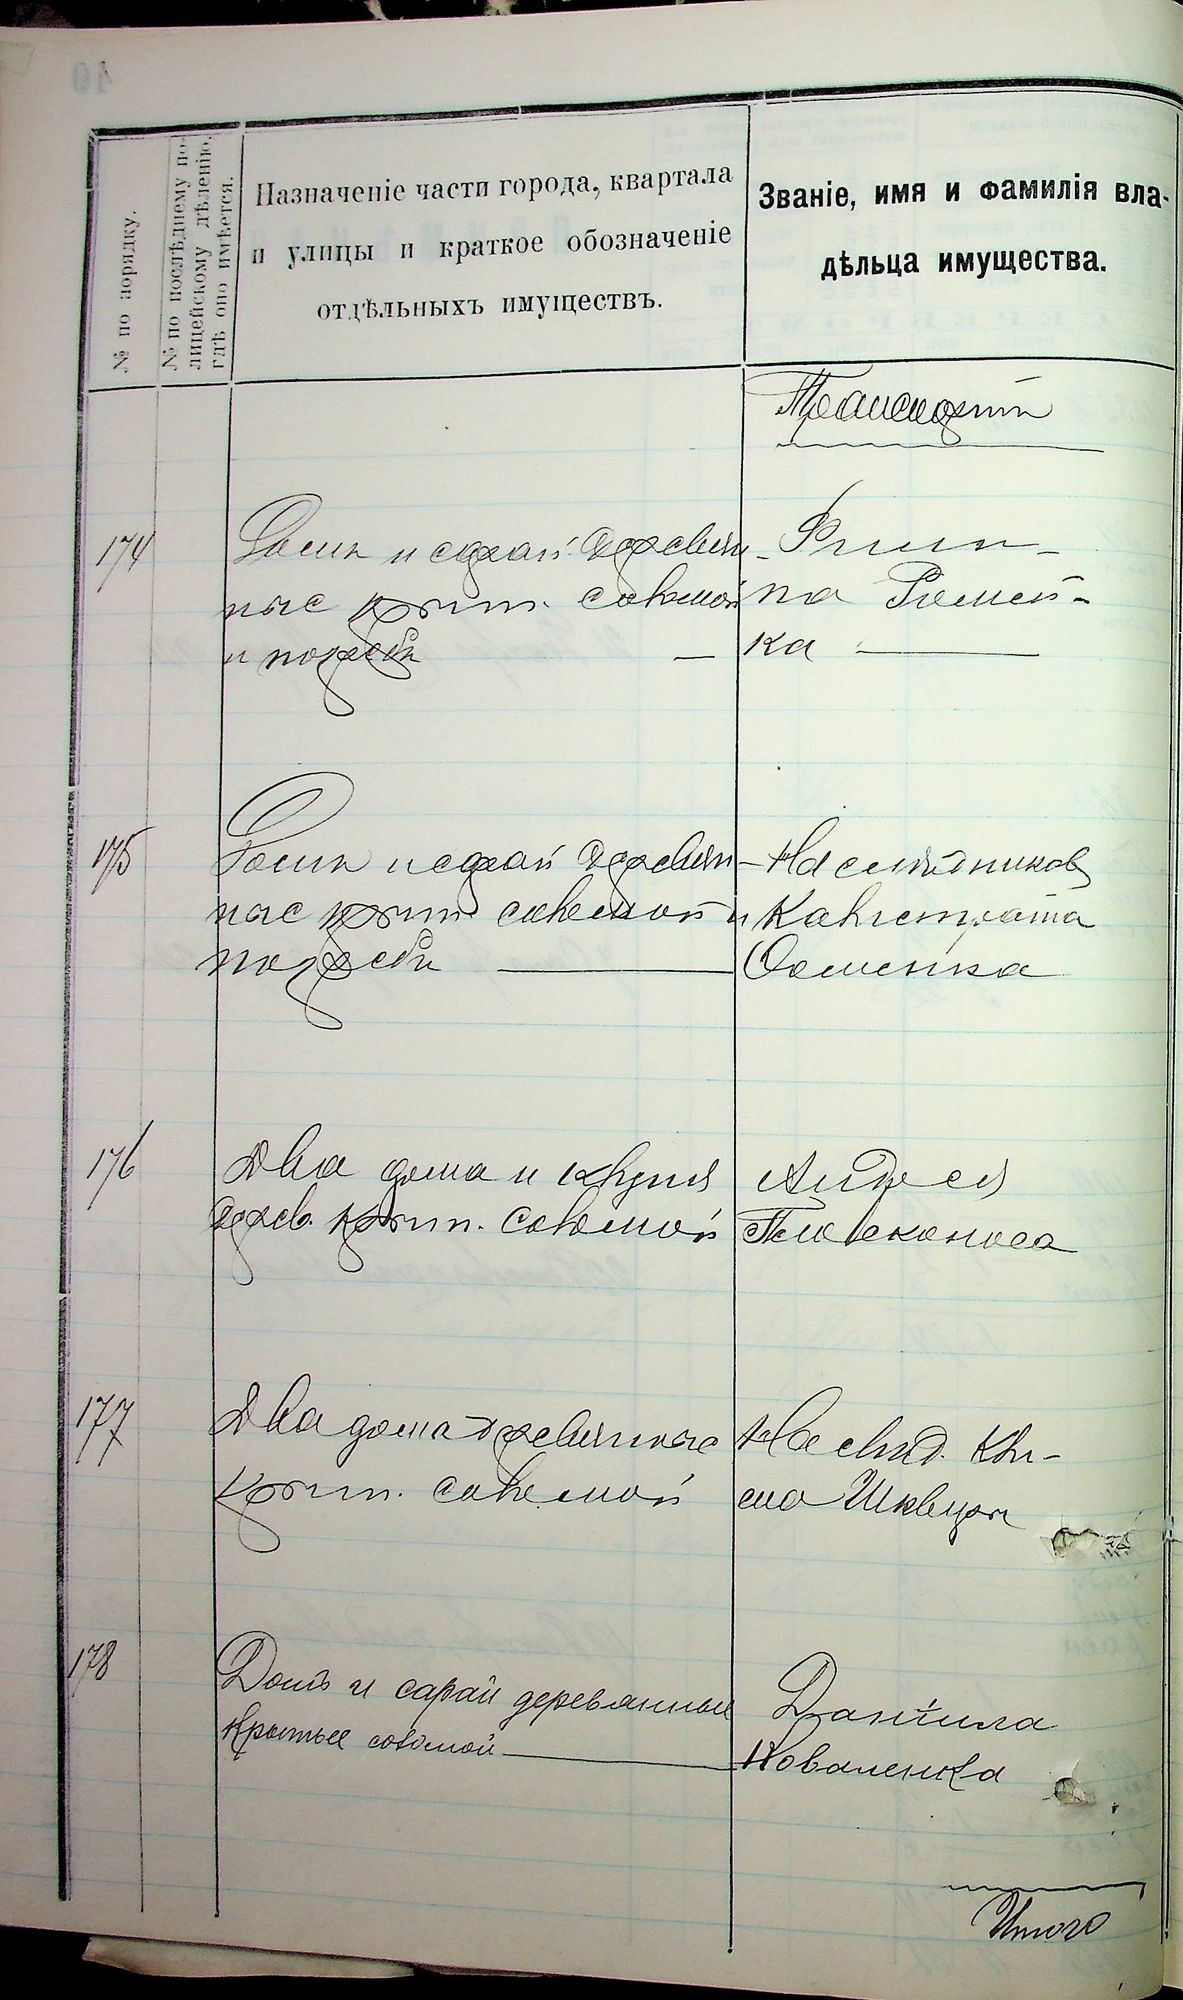 № по порядку.
№ по послѣднему по-
лицейскому дѣленію,
гдѣ оно имѣется.
Назначеніе части города, квартала
и улицы и краткое обозначеніе
отдѣльныхъ имуществъ.
Званіе, имя и фамилія вла-
дѣльца имущества.
Транспортъ
174
Домъ и сарай деревян-
ные крыт. соломой
и погребъ
на
ка
175
Домъ и сарай деревян-
ные крыт. соломой и
погребъ
Наслѣдниковъ
Калистрата
Фоменка
176
Два дома и клуня
дерев. крыт. соломой
Андрея
Плосконоса
177
Два дома деревянные
крыт. соломой
Наслѣд. Кли-
ма Шквыри
178
Домъ и сарай деревянные
крытые соломой
Даніила
Коваленка
Итого